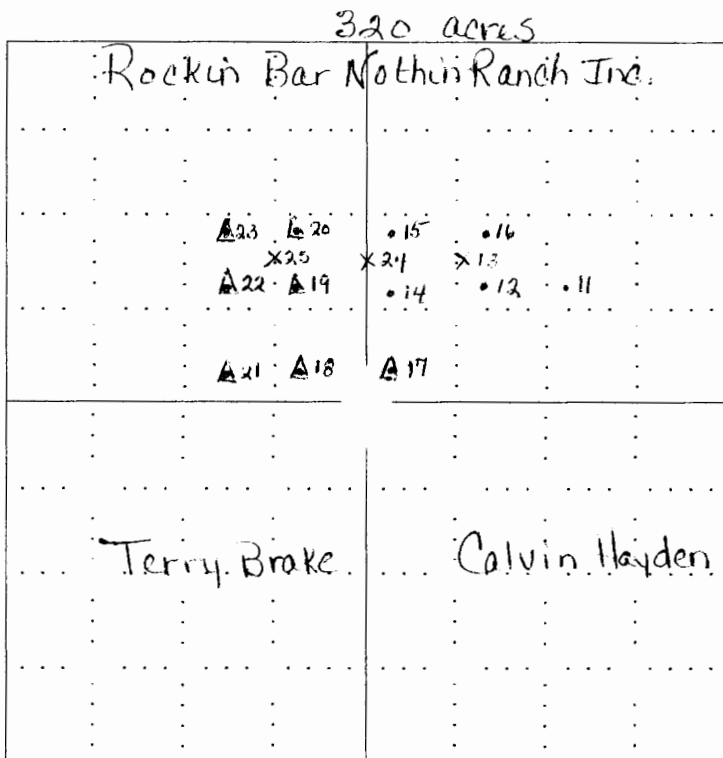 320 acres
Rockin Bar Nothin Ranch Inc.
23 20 15 16
25 24 13
22 19 14 12 11
21 18 17
Terry Brake Calvin Hayden